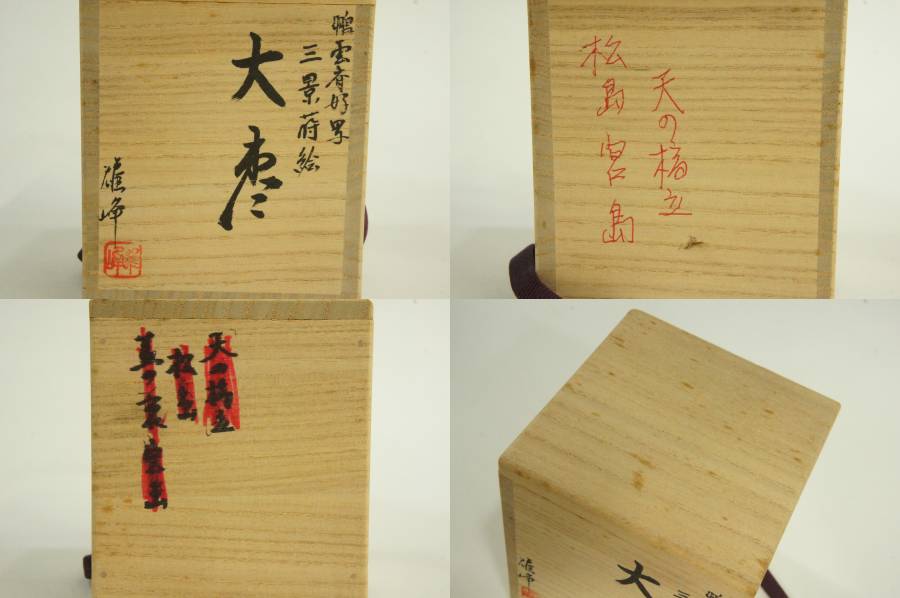 鵬雲斎好写
三景蒔絵
大棗
雄峰
天の橋立
松島 宮島
天ノ橋立
松島
蓋ノ裏 宮島
大
三
雄峰